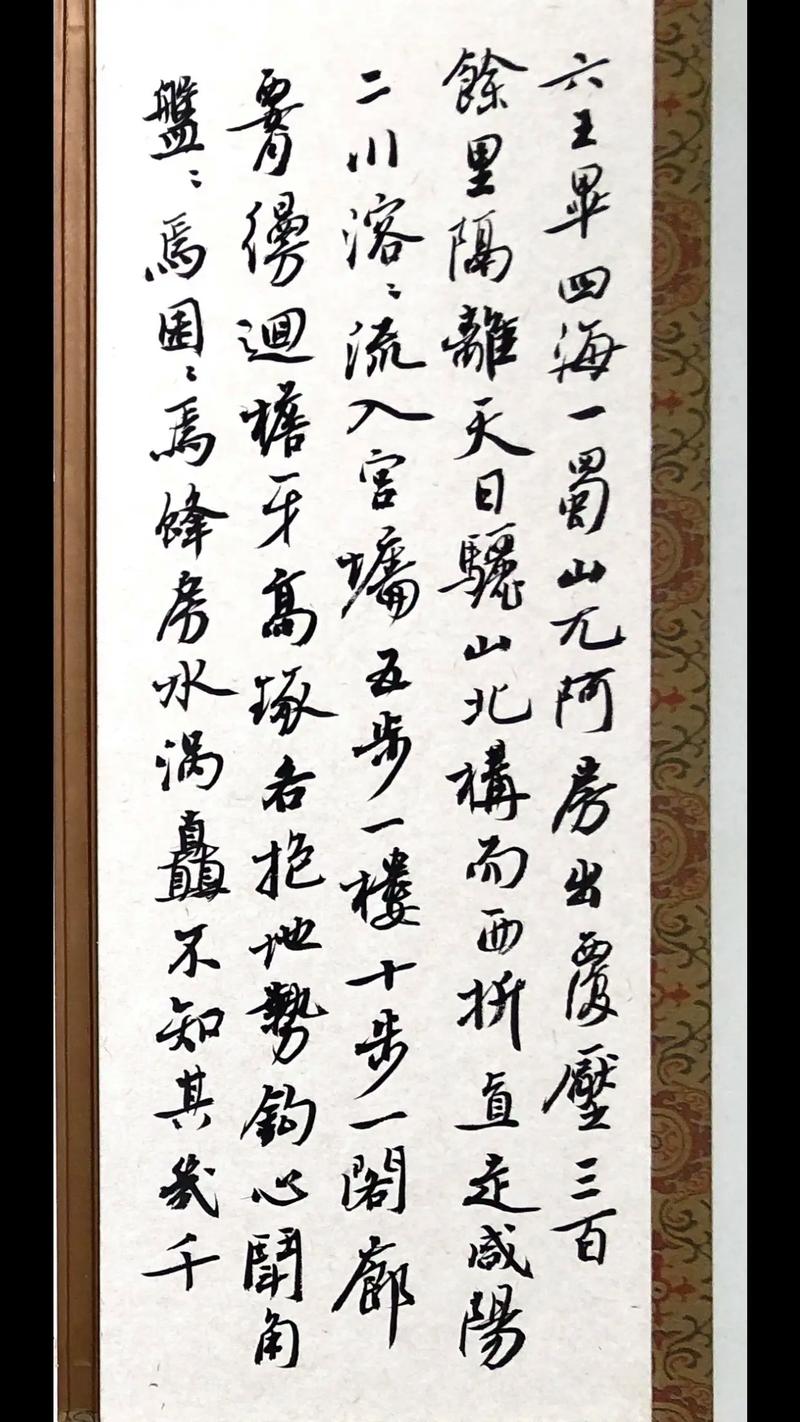 六王畢四海一蜀山兀阿房出覆壓三百
餘里隔離天日驪山北構而西折直走咸陽
二川溶〻流入宮墻五步一樓十步一閣廊
腰縵迴檐牙高琢各抱地勢鉤心鬭角
盤〻焉囷〻焉蜂房水渦矗不知其幾千